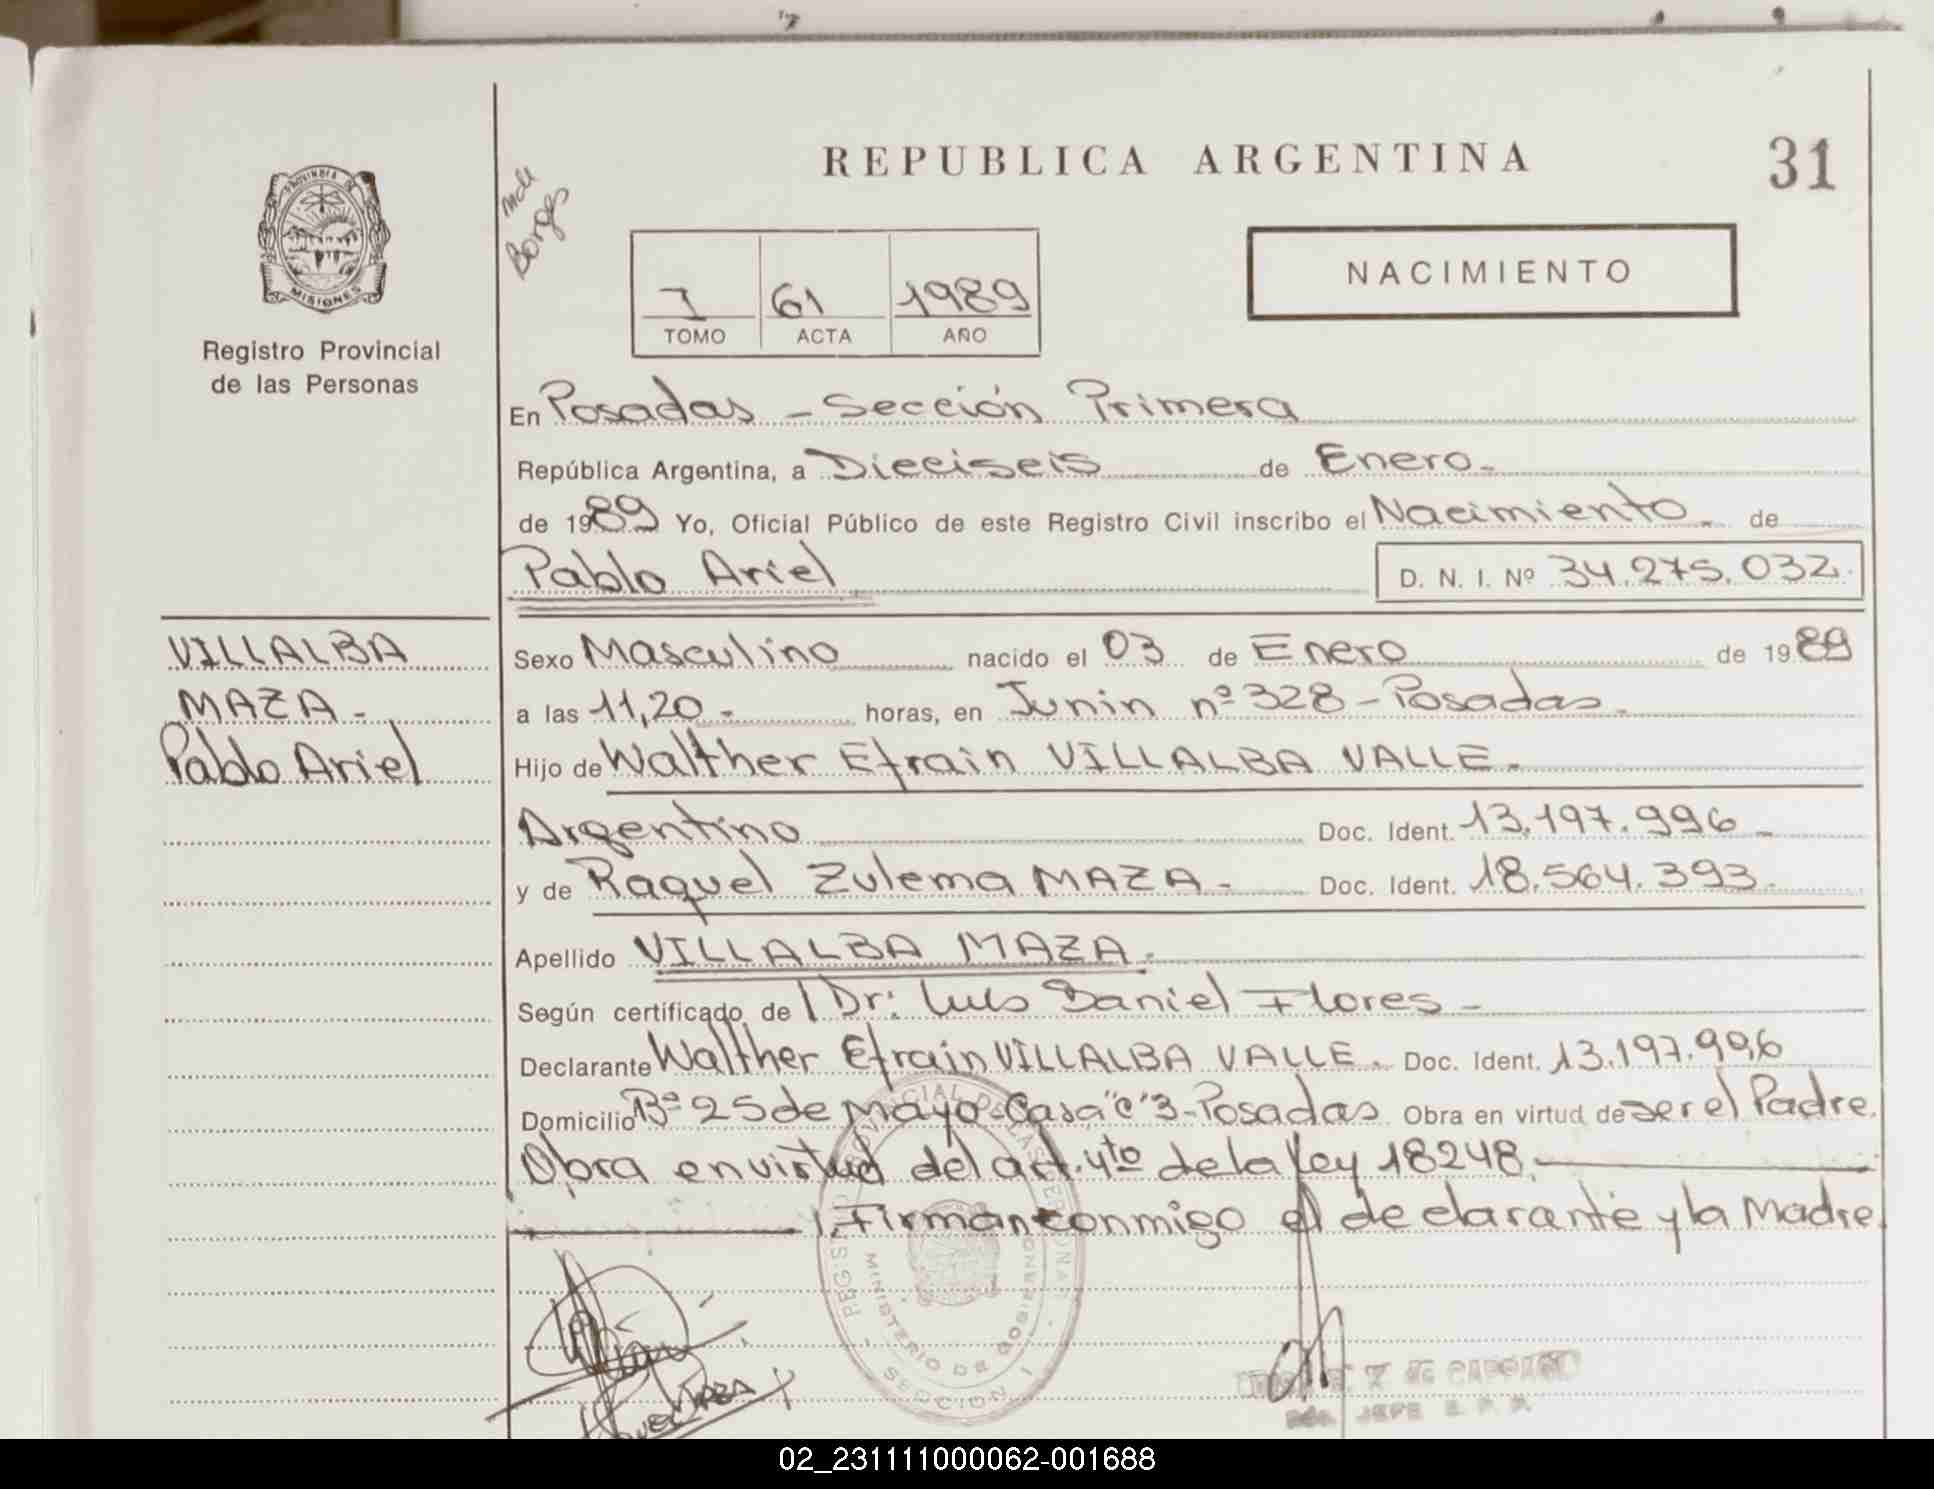 REPUBLICA ARGENTINA
31
PROVINCIA DE
MISIONES
Registro Provincial
de las Personas
Borges
I 61 1989
TOMO ACTA AÑO
NACIMIENTO
En Posadas - Sección Primera
República Argentina, a Dieciseis de Enero.-
de 1989 Yo, Oficial Público de este Registro Civil inscribo el Nacimiento. de
Pablo Ariel D. N. I. Nº 34.275.032.
VILLALBA
MAZA.-
Pablo Ariel
Sexo Masculino nacido el 03 de Enero de 1989
a las 11,20.- horas, en Junin nº 328 - Posadas.
Hijo de Walther Efrain VILLALBA VALLE.
Argentino Doc. Ident. 13.197.996 -
y de Raquel Zulema MAZA.- Doc. Ident. 18.564.393.
Apellido VILLALBA MAZA.
Según certificado de Dr: Luis Daniel Flores -
Declarante Walther Efrain VILLALBA VALLE. Doc. Ident. 13.197.996
Domicilio Bº 25 de Mayo-Casa "C" 3-Posadas Obra en virtud de ser el Padre.
Obra en virtud del art. 4to de la Ley 18248.
Firman conmigo el declarante y la Madre.
REGISTRO PROVINCIAL DE LAS PERSONAS
MINISTERIO DE GOBIERNO
SECCION 1
MAZA
JEFE
02_231111000062-001688